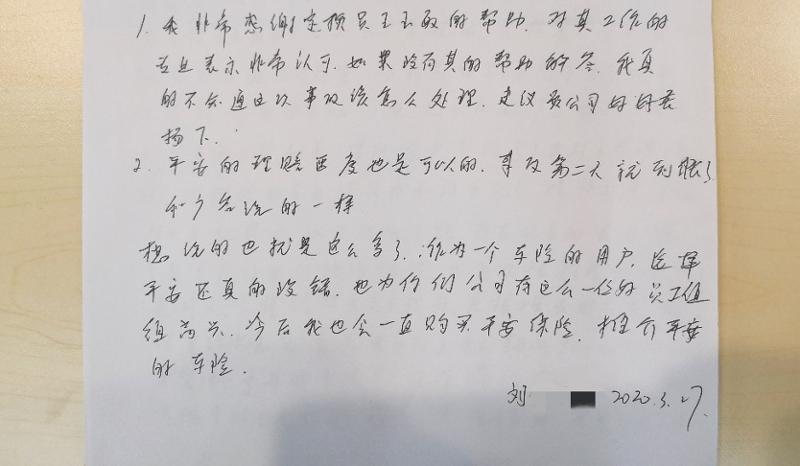 1. 我非常感谢定损员王玉敏的帮助. 对其工作的
专业表示非常认可. 如果没有其的帮助的答. 我真
的不知道这次事故该怎么处理. 建议贵公司好好表
扬下.
2. 平安的理赔速度也是可以的. 事故第二天就到账了
和广告说的一样
想说的也就是这么多了. 作为一个车险的用户. 选择
平安还真的没错. 也为你们公司有这么一位好员工值
得高兴. 今后我也会一直购买平安保险. 推介平安
的车险.
刘 2020.3.27.